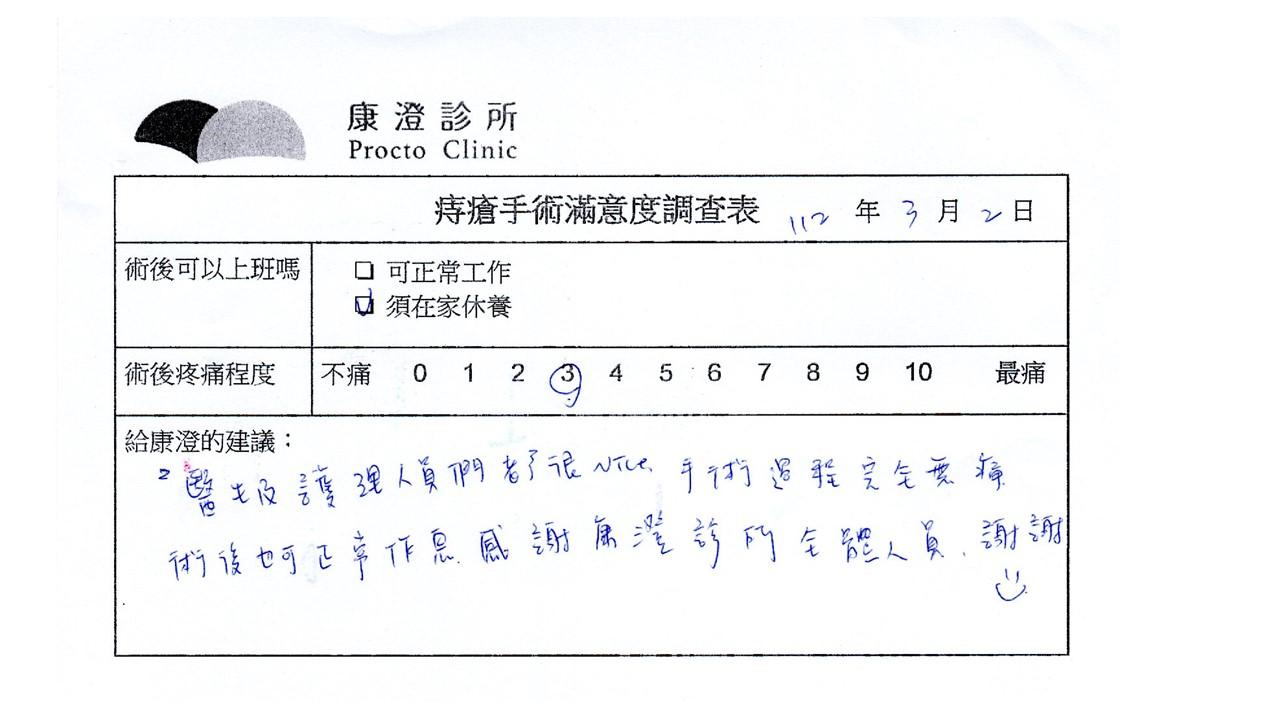 康澄診所
Procto Clinic
痔瘡手術滿意度調查表 112 年 3 月 2 日
術後可以上班嗎
可正常工作
須在家休養
術後疼痛程度 不痛 0 1 2 3 4 5 6 7 8 9 10 最痛
給康澄的建議：
醫生及護理人員們都很Nice 手術過程完全無痛
術後也可正常作息. 感謝康澄診所全體人員. 謝謝